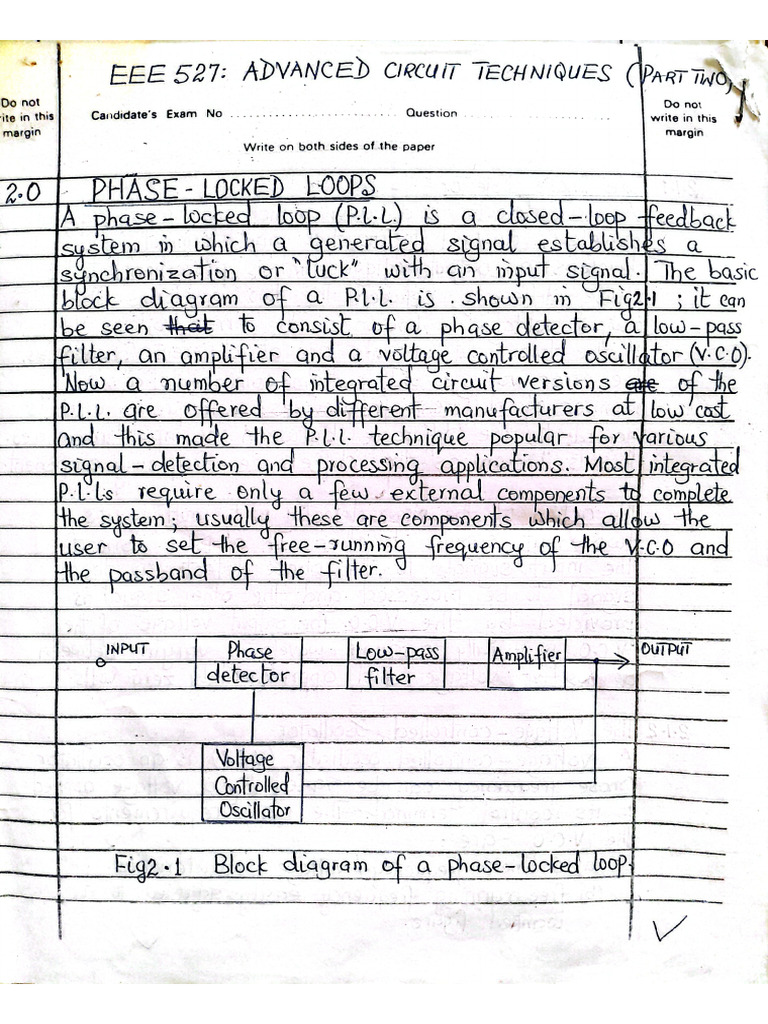 EEE 527: ADVANCED CIRCUIT TECHNIQUES (PART TWO)
Do not
rite in this
margin
Candidate's Exam No ........................ Question ........................
Write on both sides of the paper
Do not
write in this
margin
2.0 PHASE-LOCKED LOOPS
A phase-locked loop (P.L.L.) is a closed-loop feedback
system in which a generated signal establishes a
synchronization or "luck" with an input signal. The basic
block diagram of a P.L.L. is shown in Fig2.1; it can
be seen that to consist of a phase detector, a low-pass
filter, an amplifier and a voltage controlled oscillator (V.C.O).
Now a number of integrated circuit versions are of the
P.L.L. are offered by different manufacturers at low cost
and this made the P.L.L. technique popular for various
signal-detection and processing applications. Most integrated
P.L.Ls require only a few external components to complete
the system; usually these are components which allow the
user to set the free-running frequency of the V.C.O and
the passband of the filter.
INPUT
Phase
detector
Low-pass
filter
Amplifier
OUTPUT
Voltage
Controlled
Oscillator
Fig2.1 Block diagram of a phase-locked loop.